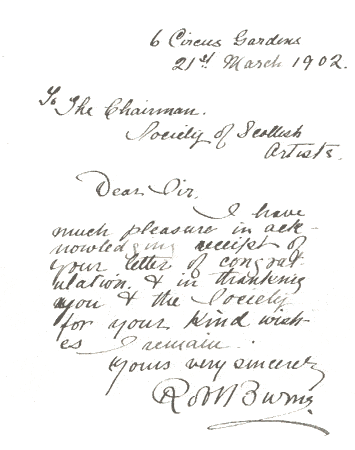 6 Circus Gardens
21st March 1902.
To The Chairman.
Society of Scottish
Artists.
Dear Sir.
I have
much pleasure in ack-
nowledging receipt of
your letter of congrat-
ulation. & in thanking
you & the Society
for your kind wish-
es I remain.
Yours very sincerely
Robt Burns